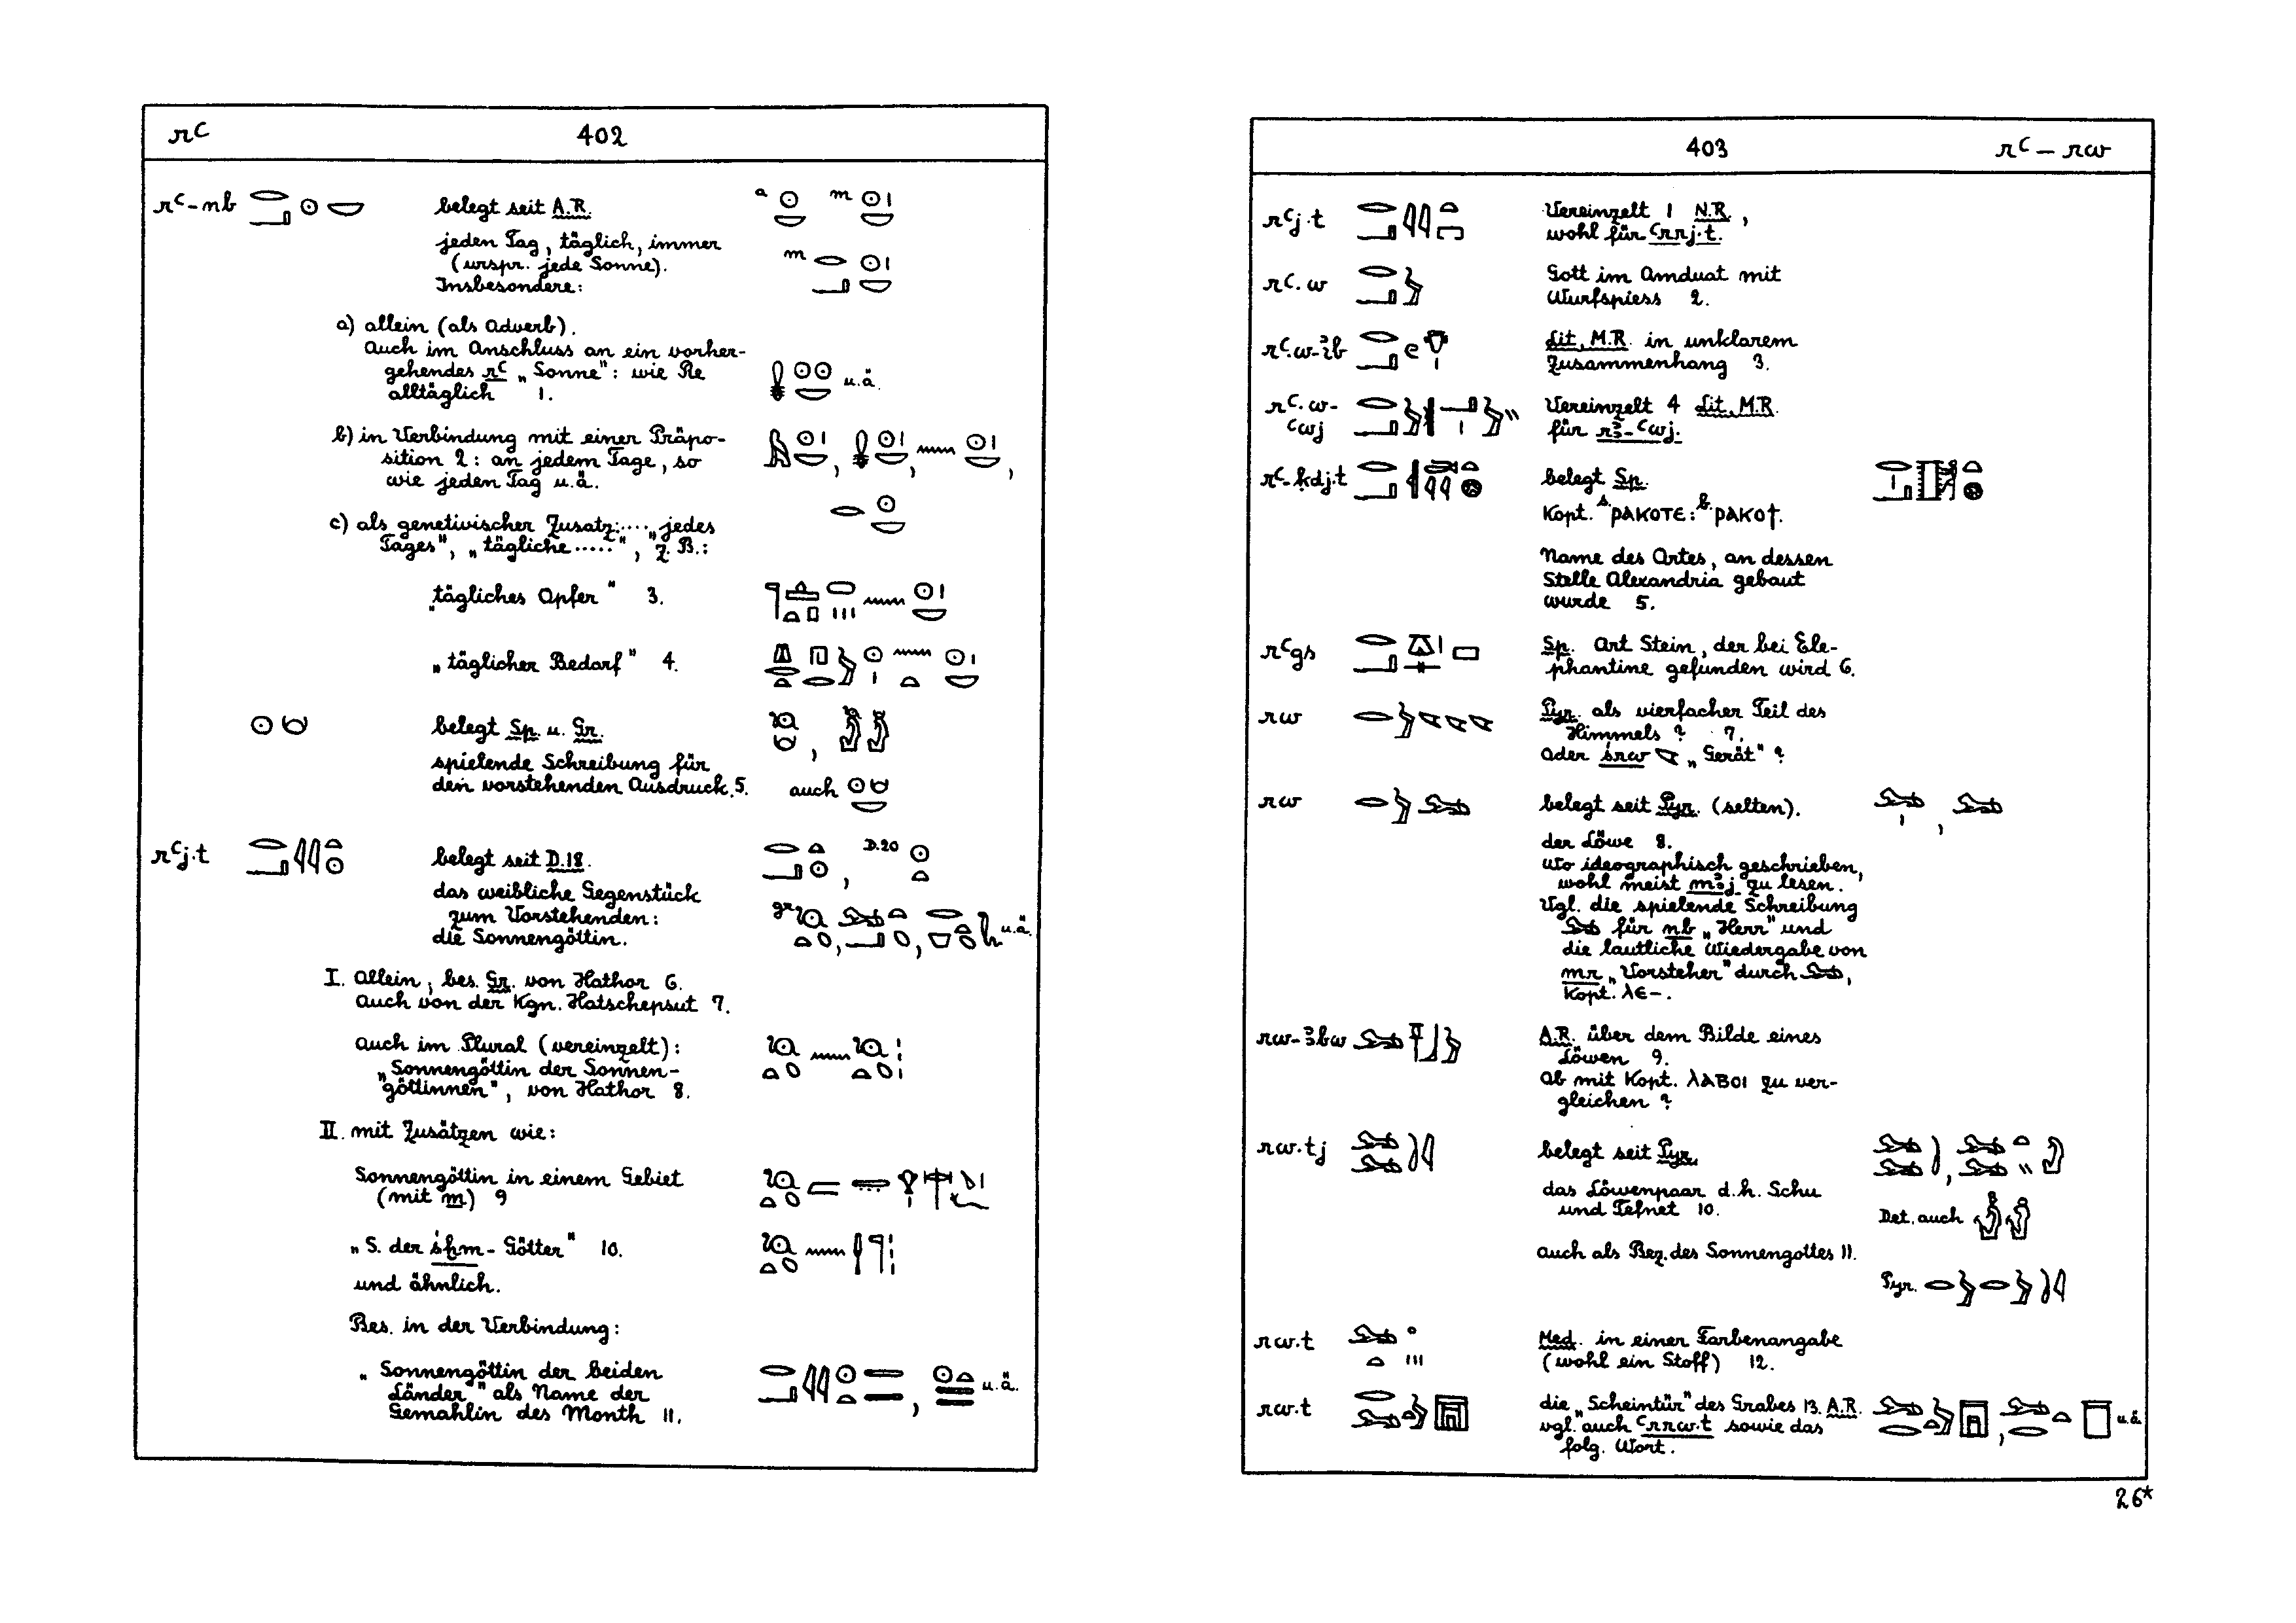 rꜥ 402
rꜥ-nb belegt seit A.R.
jeden Tag, täglich, immer
(urspr. jede Sonne).
Insbesondere:
a m
m
a) allein (als Adverb).
Auch im Anschluss an ein vorher-
gehendes rꜥ „Sonne": wie Re
alltäglich 1.
u.ä.
b) in Verbindung mit einer Präpo-
sition 2: an jedem Tage, so
wie jeden Tag u.ä.
c) als genetivischer Zusatz: .... „jedes
Tages", „tägliche .....", z.B.:
„tägliches Opfer" 3.
„täglicher Bedarf" 4.
belegt Sp. u. Gr.
spielende Schreibung für
den vorstehenden Ausdruck. 5.
auch
rꜥj.t belegt seit D.18.
D.20
das weibliche Gegenstück
zum Vorstehenden:
die Sonnengöttin.
gr. u.ä.
I. Allein, bes. Gr. von Hathor 6.
Auch von der Kgn. Hatschepsut 7.
auch im Plural (vereinzelt):
„Sonnengöttin der Sonnen-
göttinnen", von Hathor 8.
II. mit Zusätzen wie:
Sonnengöttin in einem Gebiet
(mit m) 9
„S. der śḫm-Götter" 10.
und ähnlich.
Bes. in der Verbindung:
„Sonnengöttin der beiden
Länder" als Name der
Gemahlin des Month 11.
u.ä.
403 rꜥ – rw
rꜥj.t Vereinzelt 1 N.R.,
wohl für ꜥrrj.t.
rꜥ.w Gott im Amduat mit
Wurfspiess 2.
rꜥ.w-ỉb Lit. M.R. in unklarem
Zusammenhang 3.
rꜥ.w-
ꜥwj
Vereinzelt 4 Lit. M.R.
für rꜣ-ꜥwj.
rꜥ-ḳdj.t belegt Sp.
Kopt. s. ⲣⲁⲕⲟⲧⲉ: b. ⲣⲁⲕⲟϯ.
Name des Ortes, an dessen
Stelle Alexandria gebaut
wurde 5.
rꜥgs Sp. Art Stein, der bei Ele-
phantine gefunden wird 6.
rw Pyr. als vierfacher Teil des
Himmels? 7.
Oder śrw „Gerät"?
rw belegt seit Pyr. (selten).
der Löwe 8.
Wo ideographisch geschrieben,
wohl meist mꜣj zu lesen.
Vgl. die spielende Schreibung
für nb „Herr" und
die lautliche Wiedergabe von
mr „Vorsteher" durch ,
Kopt. ⲗⲉ-.
rw-ꜣbw A.R. über dem Bilde eines
Löwen 9.
Ob mit Kopt. ⲗⲁⲃⲟⲓ zu ver-
gleichen?
rw.tj belegt seit Pyr.
das Löwenpaar d.h. Schu
und Tefnet 10.
Det. auch
auch als Bez. des Sonnengottes 11.
Pyr.
rw.t Med. in einer Farbenangabe
(wohl ein Stoff) 12.
rw.t die „Scheintür" des Grabes 13. A.R.
vgl. auch ꜥrrw.t sowie das
folg. Wort.
u.ä.
26*